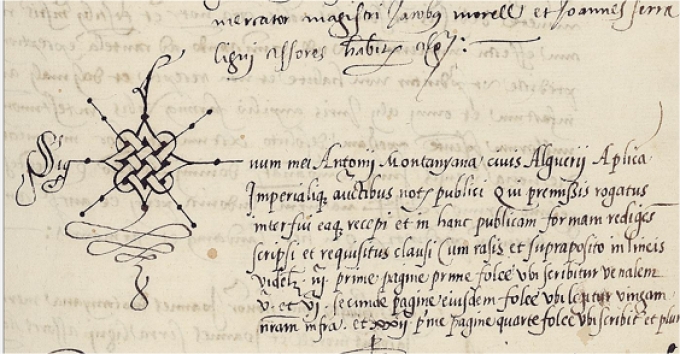 mercator magistri Jacobus morell et Joannes serra
ligni assores habit
Sig num mei Antonii Montanyana civis Alguerii Aplica
Imperialiq auctibus not publici Qui premissis rogatus
interfui eaq recepi et in hanc publicam formam rediges
scripsi et requisitus clausi Cum rasis et supraposito in lineis
videlz iij prime pagine prime folee ubi scribitur venalem
v. et vi. secunde pagine eiusdem folee ubi
nram infra. et xxxij pme pagine quarte folee ubi scribit et